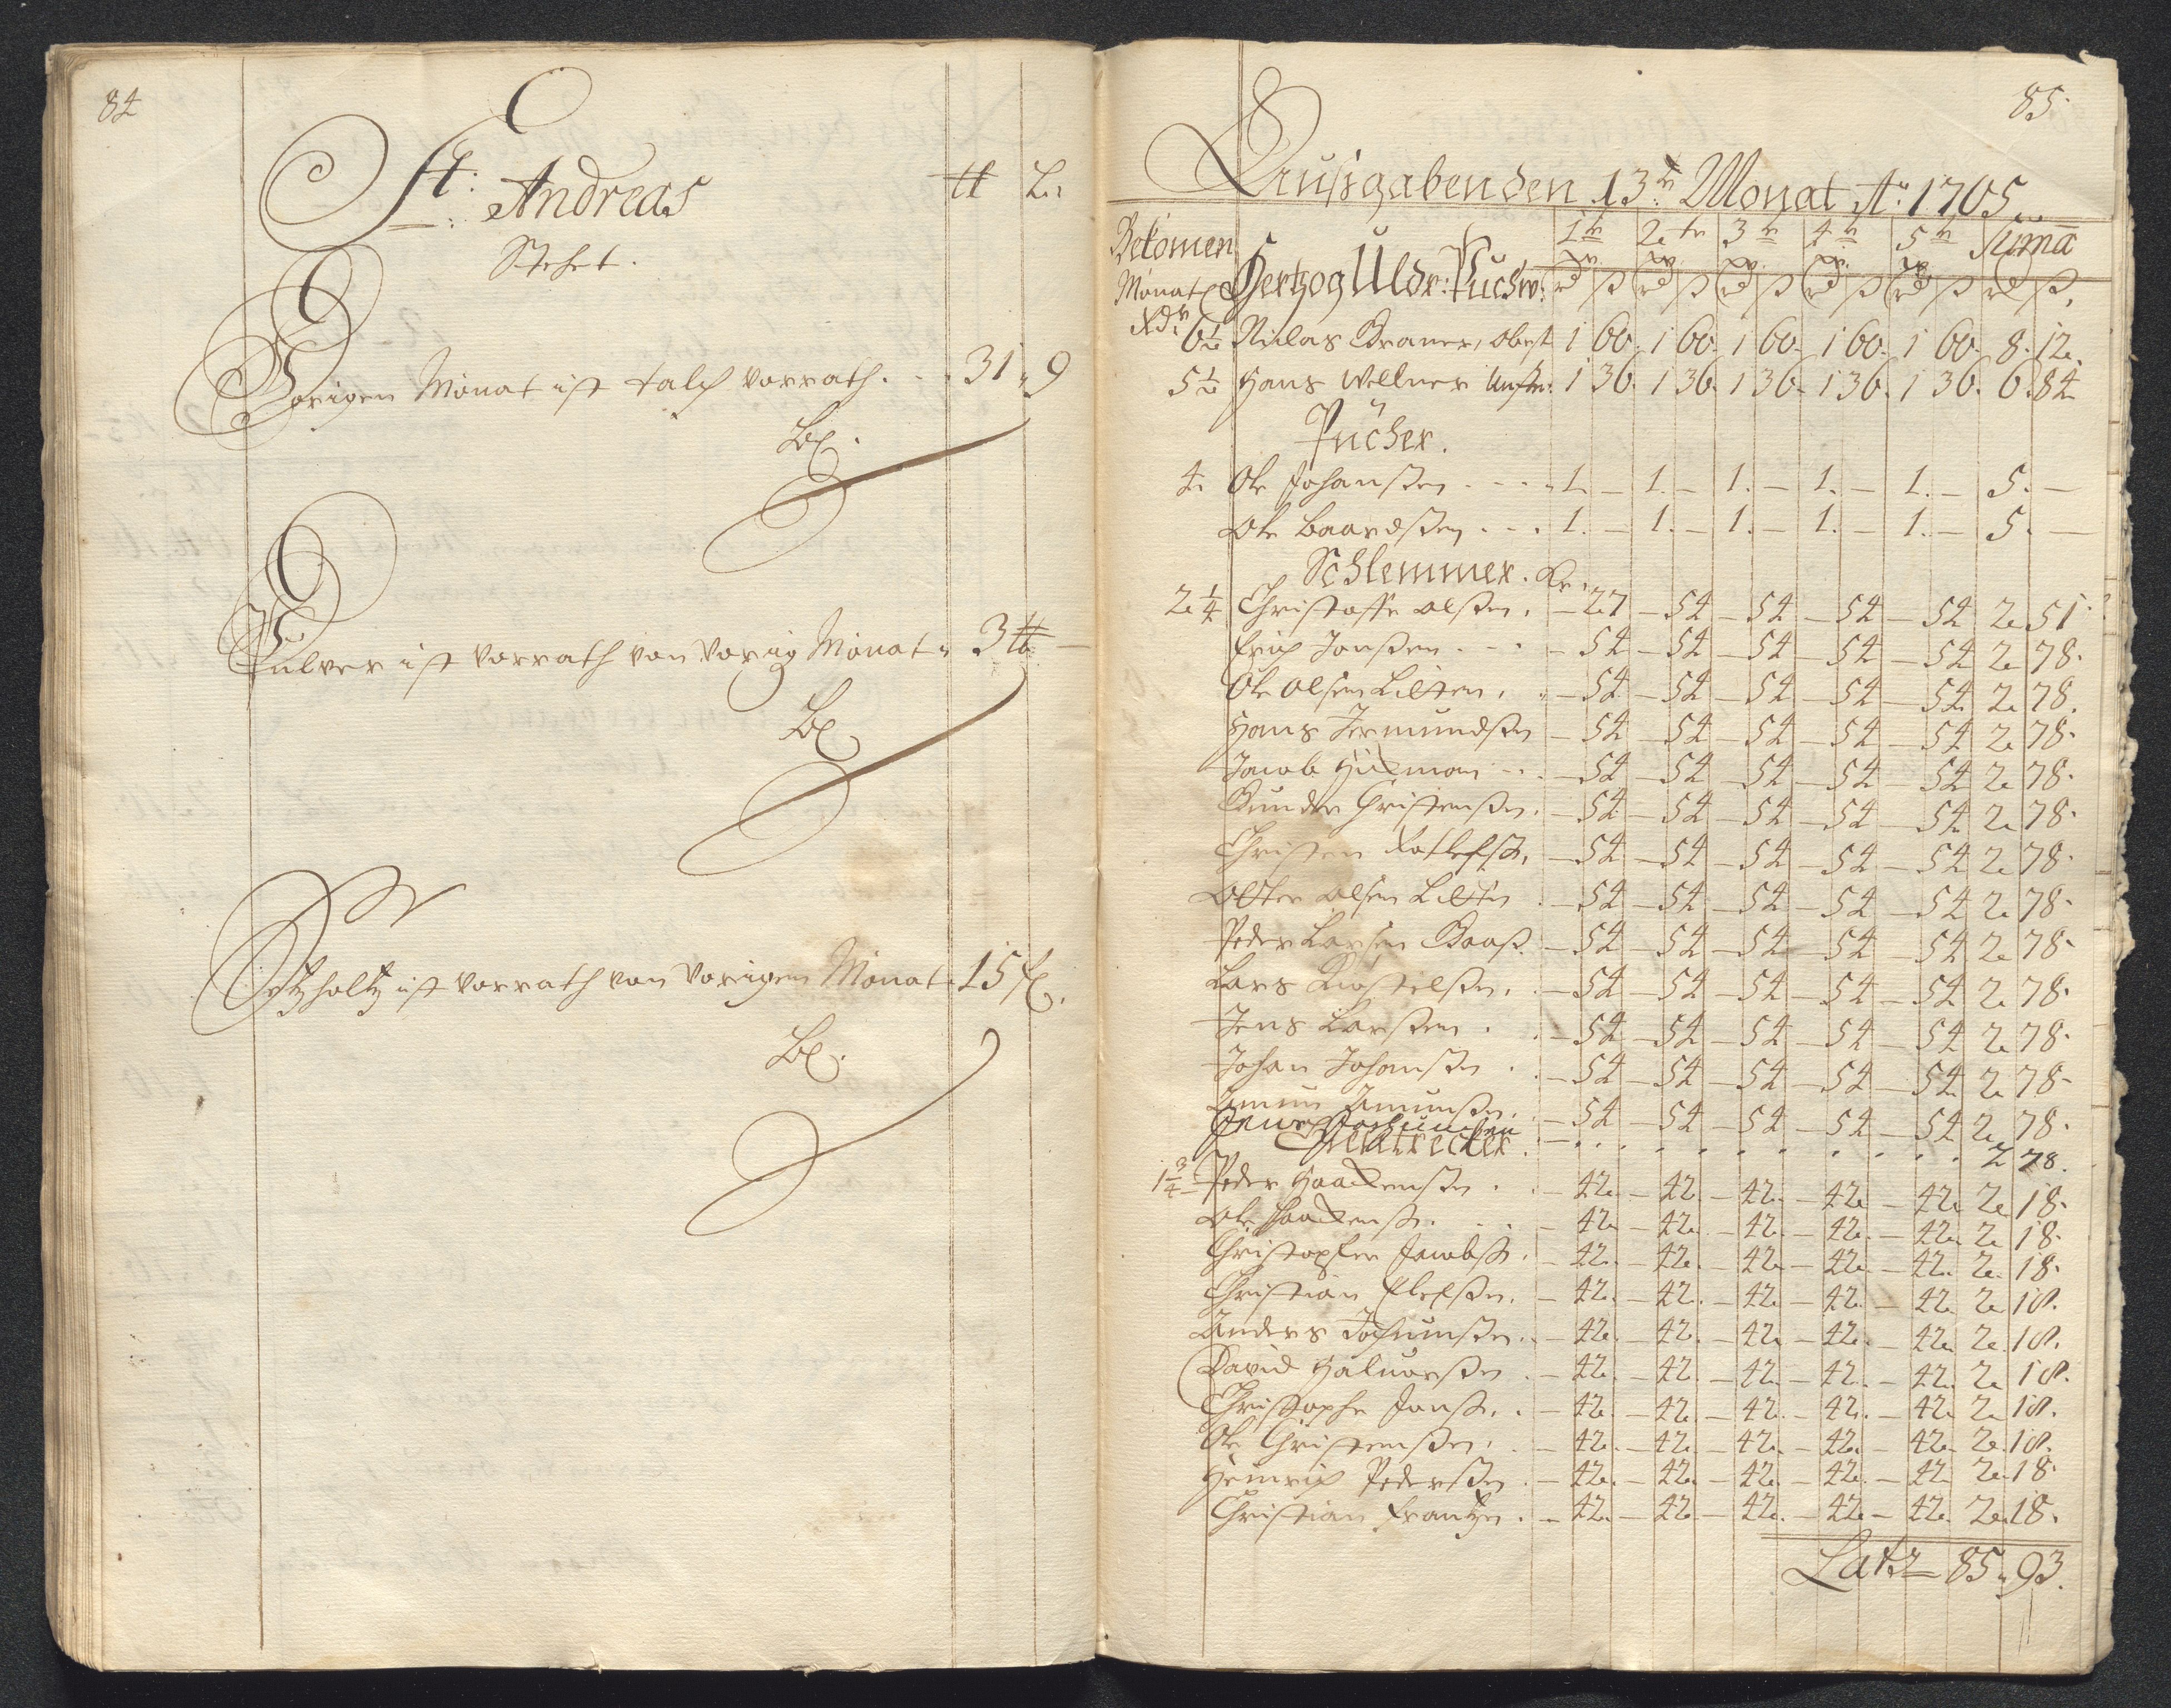 84
St: Andreas
Stehet.
tt L:
Vorigen Monat ist talch vorrath . . . 31 " 9
Pulver ist vorrath von vorig Monat " 3 tt —
Setzholtz ist vorrath von vorigen Monat . 15
85.
Ausgaben den 13tn Monat Ao: 1705
Bekomen Monat
Hertzog Uldr: Puchw:
1tr 2tr 3tr 4tr 5tr Suma
6½ Niclas Braner, obest 1 60. 1 60. 1 60. 1 60. 1 60. 8. 12.
5½ Hans Wellner Unstr: 1 36. 1 36. 1 36. 1 36. 1 36. 6. 84
Pücher.
4. Ole Johanßen . . . 1. — 1. — 1. — 1. — 1. — 5. —
Ole Baardßen . . . 1. — 1. — 1. — 1. — 1. — 5. —
Schlemmer.
2¼ Christoffe Olßen. — 27 — 54 — 54 — 54 — 54 2 51.
Erich Jonßen . . . — 54 — 54 — 54 — 54 — 54 2 78.
Ole Olsen Lilten. — 54 — 54 — 54 — 54 — 54 2 78.
Hans Jermundßen — 54 — 54 — 54 — 54 — 54 2 78.
Jacob — 54 — 54 — 54 — 54 — 54 2 78.
Gunder Christenßen. — 54 — 54 — 54 — 54 — 54 2 78.
Christen — 54 — 54 — 54 — 54 — 54 2 78.
Olsen Lilten — 54 — 54 — 54 — 54 — 54 2 78.
Peder Larsen Baaß — 54 — 54 — 54 — 54 — 54 2 78.
Lars — 54 — 54 — 54 — 54 — 54 2 78.
Jens Larßen . — 54 — 54 — 54 — 54 — 54 2 78.
Johan Johanßen . — 54 — 54 — 54 — 54 — 54 2 78.
Amun Amunßen. — 54 — 54 — 54 — 54 — 54 2 78.
— . . . . . . . . . 2 78.
1¾ Peder Haackenßen . — 42. — 42 — 42. — 42. — 42. 2 18.
Ole Haackenß. . . — 42. — 42. — 42. — 42. — 42. 2 18.
Christopfer Jacobß. — 42. — 42. — 42. — 42. — 42. 2. 18.
Christian — 42. — 42. — 42. — 42. — 42. 2. 18.
Anders Jochumßen. — 42. — 42. — 42. — 42. — 42. 2. 18.
David Haluorßen . — 42. — 42. — 42. — 42. — 42. 2. 18.
Christophe Jonß. . — 42. — 42. — 42. — 42. — 42. 2. 18.
Ole Christenßen. . — 42. — 42. — 42. — 42. — 42. 2. 18.
Heinrich Pederßen . — 42. — 42. — 42. — 42. — 42 2. 18.
Christian Frantzen . — 42. — 42. — 42. — 42. — 42. 2. 18.
Latz — 85 " 93.